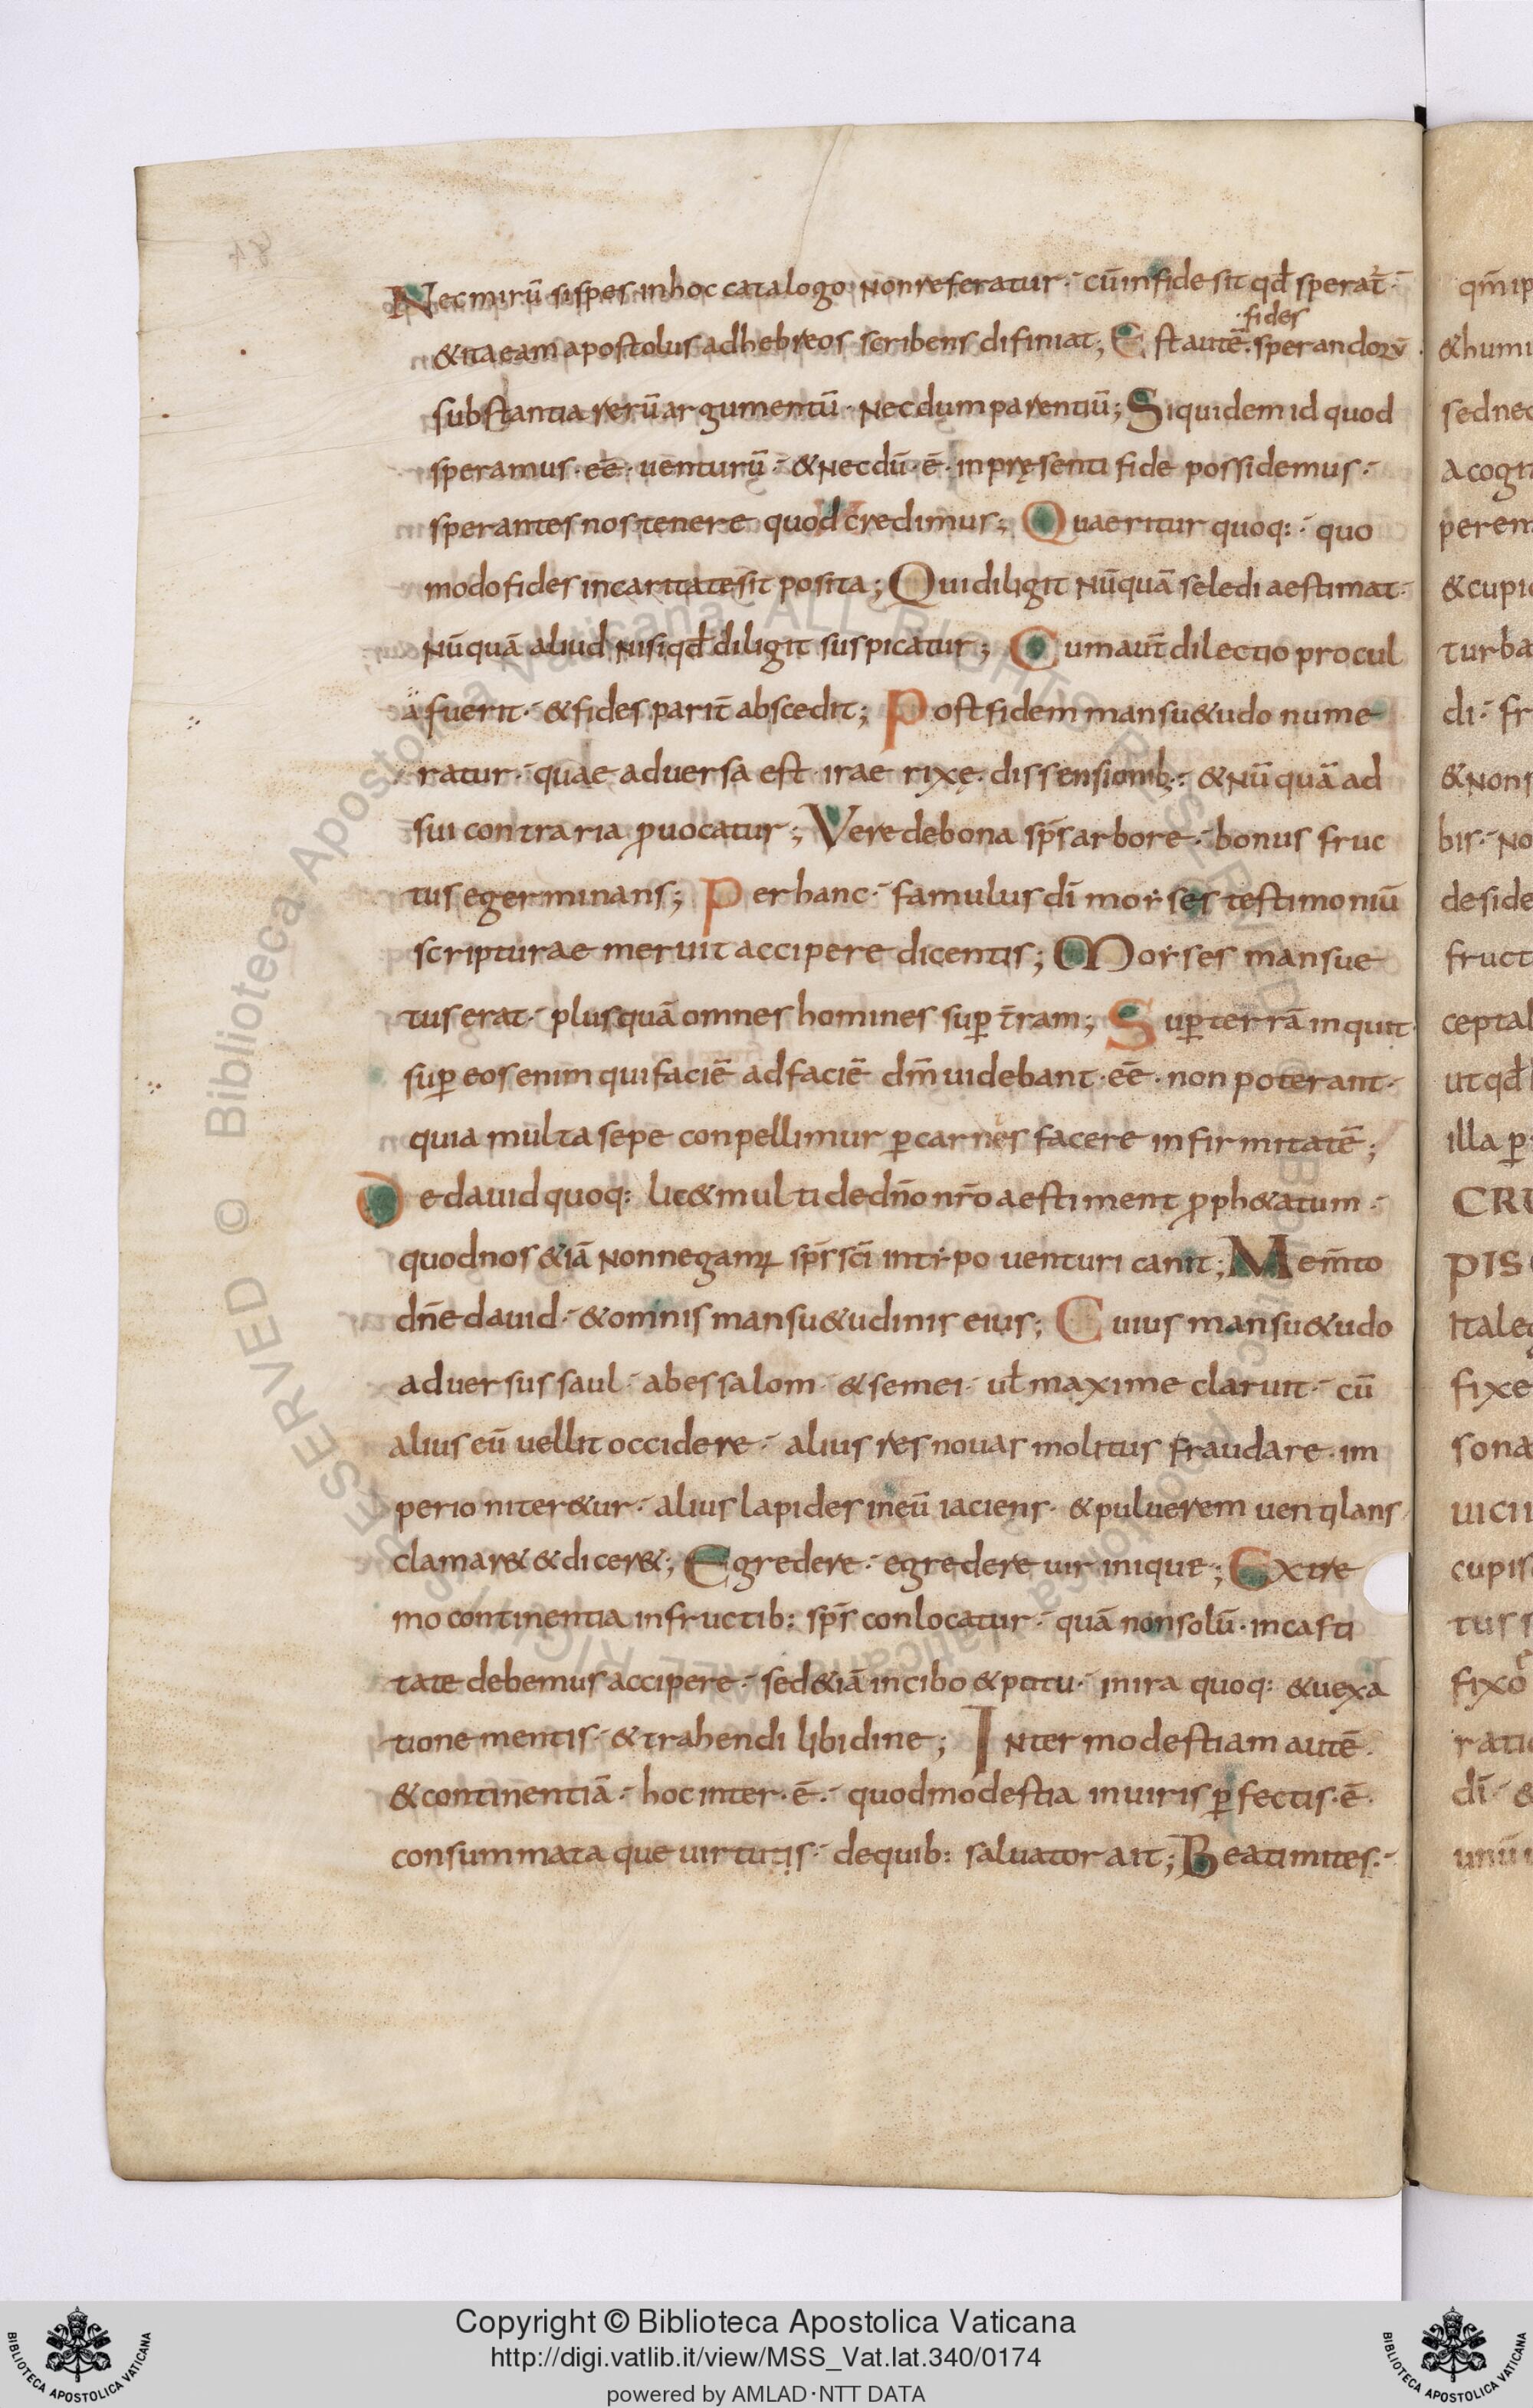 Nec mirū si spes in hoc catalogo non referatur· cū in fide sit qđ sperat̄·
& ita eam apostolus ad hebreos scribens difiniat; Est autē· sperandorū
·fides
substantia rerū argumentū· necdum parentiū; Siquidem id quod
speramus· eē· venturū· & necdū· ē· in pręsenti fide possidemus·
sperantes nos tenere quod credimus; Quaeritur quoq:· quo
modo fides in caritate sit posita; Qui diligit nūquā se ledi aestimat·
nūquā aliud nisi qđ diligit suspicatur; Cum aut̄ dilectio procul
afuerit· & fides parit̄ abscedit; Post fidem mansu&udo nume
ratur· quae adversa est· irae rixę· dissensionib:· & nūquā ad
sui contraria ꝓuocatur; Vere de bona sp̄s arbore· bonus fruc
tus egerminans; Per hanc· famulus dī moyses testimoniū
scripturae meruit accipere dicentis; Moyses mansue
tus erat· plus quā omnes homines suꝑ t̄ram; Suꝑ terrā inquit·
suꝑ eos enim qui faciē ad faciē dm̄ uidebant· eē· non poterant·
quia multa sepe conpellimur ꝑ carnes facere infirmitatē;
De dauid quoq: lic& multi de dn̄o nr̄o aestiment ꝓph&atum·
quod nos &iā non negamꝰ sp̄s sc̄i in typo venturi canit; Mem̄to
dn̄e dauid· & omnis mansu&udinis eius; Cuius mansu&udo
aduersus saul· abessalom· & semei· ul̄ maxime claruit· cū
alius eū uellit occidere· alius res nouas molitus fraudare· im
perio niter&ur· alius lapides in eū iaciens· & puluerem uentilans
clamar& & dicer&; Egredere· egredere uir inique; Extre
mo continentia in fructib: sp̄s conlocatur· quā non solū· in casti
tate debemus accipere· sed &iā in cibo & potu· in ira quoq: & uexa
tione mentis· & trahendi libidine; Inter modestiam autē·
& continentiā· hoc inter· ē· quod modestia in uiris ꝑfectis· ē·
consummata que uirtutis· de quib: saluator ait; Beati mites·
qm̄ ip
& humi
sed nec
a cogn
perem
& cupi
turba
di· fr
& non
bis· no
deside
fruct
ceptal
ut qđ
illa ꝑ
CRU
PISC
Itale
fixe
sona
uicii
cupis
tus s
fixo
ratio
dī· &
unū
© Biblioteca Apostolica Vaticana ALL RIGHTS RESERVED
Copyright © Biblioteca Apostolica Vaticana
http://digi.vatlib.it/view/MSS_Vat.lat.340/0174
powered by AMLAD·NTT DATA
BIBLIOTECA APOSTOLICA VATICANA
BIBLIOTECA APOSTOLICA VATICANA